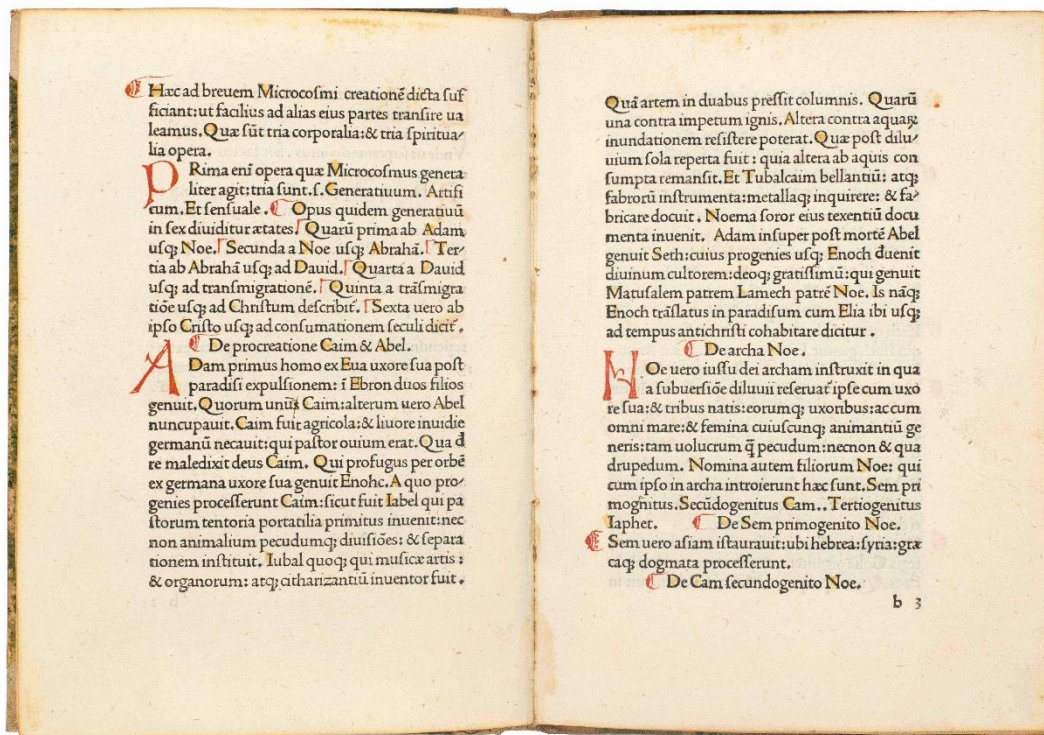 Hæc ad breuem Microcoſmi creationē dicta ſuf
ficiant: ut facilius ad alias eius partes tranſire ua
leamus. Quæ sūt tria corporalia: & tria ſpiritua⸗
lia opera.
PRima eni opera quæ Microcoſmus genera
liter agit: tria ſunt. ſ. Generatiuum. Artifi
cum. Et ſenſuale. Opus quidem generatiuū
in ſex diuiditur ætates Quarū prima ab Adam
uſqꝫ Noe. Secunda a Noe uſqꝫ Abrahā. Ter⸗
tia ab Abrahā uſqꝫ ad Dauid. Quarta a Dauid
uſqꝫ ad tranſmigrationē. Quinta a trāſmigra
tiōe uſqꝫ ad Chriſtum deſcribit᷑. Sexta uero ab
ipſo Criſto uſqꝫ ad conſumationem ſeculi dicit᷑.
De procreatione Caim & Abel.
ADam primus homo ex Eua uxore ſua poſt
paradiſi expulſionem: ī Ebron duos filios
genuit. Quorum unus Caim: alterum uero Abel
nuncupauit. Caim fuit agricola: & liuore inuidie
germanū necauit: qui paſtor ouium erat. Qua đ
re maledixit deus Caim. Qui profugus per orbē
ex germana uxore ſua genuit Enohc. A quo pro⸗
genies proceſſerunt Caim: ſicut fuit Iabel qui pa
ſtorum tentoria portatilia primitus inuenit: nec
non animalium pecudumqꝫ diuiſiōes: & ſepara
tionem inſtituit. Iubal quoqꝫ qui muſicæ artis:
& organorum: atqꝫ citharizantiū inuentor fuit.
Quā artem in duabus preſſit columnis. Quarū
una contra impetum ignis. Altera contra aquaꝝ
inundationem reſiſtere poterat. Quæ poſt dilu⸗
uium ſola reperta fuit: quia altera ab aquis con
ſumpta remanſit. Et Tubalcaim bellantiū: atqꝫ
fabrorū inſtrumenta: metallaqꝫ inquirere: & fa⸗
bricare docuit. Noema ſoror eius texentiū docu
menta inuenit. Adam inſuper poſt mortē Abel
genuit Seth: cuius progenies uſqꝫ Enoch đuenit
diuinum cultorem: deoqꝫ gratiſſimū: qui genuit
Matuſalem patrem Lamech patrē Noe. Is nāqꝫ
Enoch trāſlatus in paradiſum cum Elia ibi uſqꝫ
ad tempus antichriſti cohabitare dicitur.
De archa Noe.
NOe uero iuſſu dei archam inſtruxit in qua
a ſubuerſiōe diluuii reſeruat᷑ ipſe cum uxo
re ſua: & tribus natis: eorumqꝫ uxoribus: ac cum
omni mare: & femina cuiuſcunqꝫ animantiū ge
neris: tam uolucrum q̄ pecudum: necnon & qua
drupedum. Nomina autem filiorum Noe: qui
cum ipſo in archa introierunt hæc ſunt. Sem pri
mognitus. Secūdogenitus Cam.. Tertiogenitus
Iaphet. De Sem primogenito Noe.
Sem uero aſiam iſtaurauit: ubi hebrea: ſyria: græ
caqꝫ dogmata proceſſerunt.
De Cam ſecundogenito Noe.
b 3